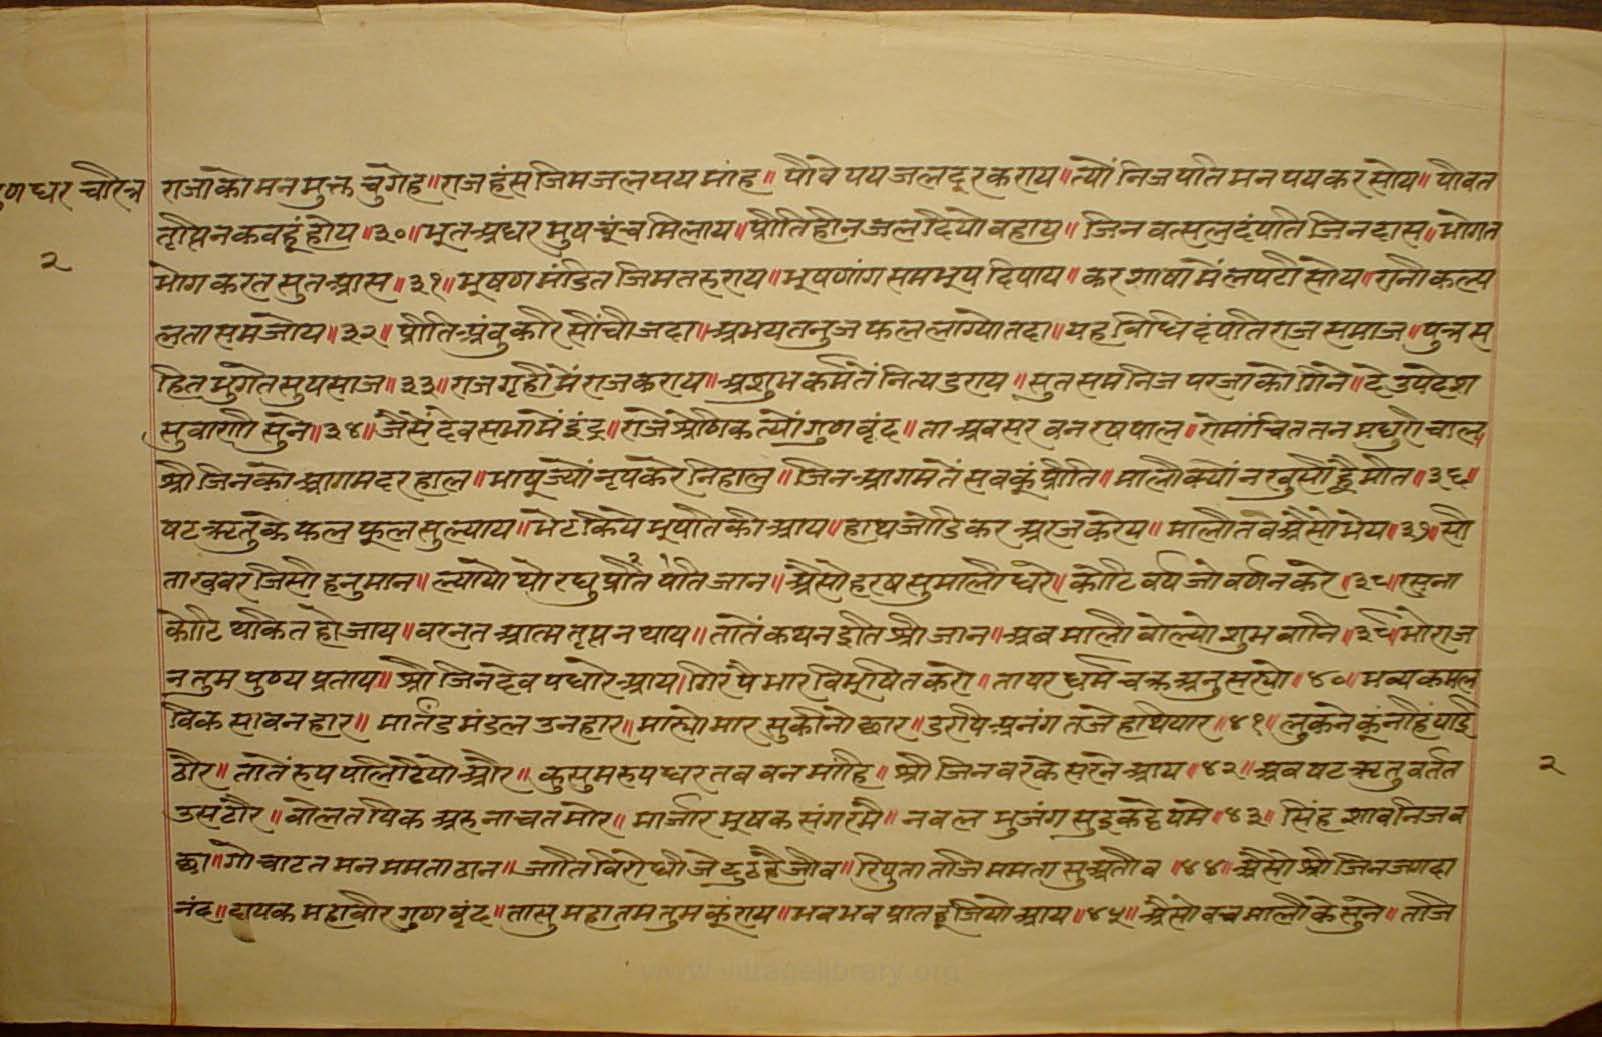 गुणधर चरित्र
२
राजा को मन मुक्त चुगेह॥ राज हंस जिम जल पय मांह॥ पीवे पय जल दूर कराय॥ त्यों निज पति मन पय कर सोय॥ पीवत
तृप्ति न कबहूं होय॥३०॥ भूत अधर मुष चूंच मिलाय॥ प्रीति हीन जल दियो वहाय॥ जिन वत्सल दंपति जिन दास॥ भोगत
भोग करत सुत आस॥३१॥ भूषण मंडित जिम तरु राय॥ भूषणांग सम भूप दिपाय॥ कर शाषा में लपटी सोय॥ रानी कल्प
लता सम जोय॥३२॥ प्रीति अंबु करि सींची जदा॥ अभय तनुज फल लाग्यो तदा॥ यह विधि दंपति राज समाज॥ पुत्र स
हित भुगेत सुष साज॥३३॥ राजगृही में राज कराय॥ अशुभ कर्म तें नित्य डराय॥ सुत सम निज परजा को गिने॥ दे उपदेश
सुवाणी सुने॥३४॥ जैसें देव सभा में इंद्र॥ राजे श्रेणिक त्यों गुण वृंद॥ ता अवसर वन रषपाल॥ रोमांचित तन मधुरी चाल॥
श्री जिन को आगम दर हाल॥ भाषू ज्यों नृप करे निहाल॥ जिन आगम तें सबकूं प्रीति॥ माली क्यों न खुसी ह्वै मीत॥३६॥
षट ऋतु के फल फूल सु ल्याय॥ भेट किये भूपति की आय॥ हाथ जोडि कर अरज करेय॥ माली तबे अैसो भेय॥३७॥ सी
ता खबर जिसी हनुमान॥ ल्यायो थो रघु प्रति पति जान॥ अैसो हरष सु माली धरे॥ कोटि वर्ष जो वर्णन करे॥३८॥ रसना
कोटि थकित हो जाय॥ वरनत आत्म तृप्त न थाय॥ तातें कथन इति श्री जान॥ अब माली बोल्यो शुभ वानि॥३९॥ भो राज
न तुम पुण्य प्रताप॥ श्री जिन देव पधारे आय॥ गिर वैभार विभूषित करो॥ तापर धर्म चक्र अनुसर्यो॥४०॥ भव्य कमल
विकसावन हार॥ मार्तंड मंडल उनहार॥ मार्यो मार सु कीनो छार॥ डरपि अनंग तजे हथियार॥४१॥ लुकने कूं नहि पाई
ठौर॥ तातें रुप पलटियो और॥ कुसुम रुप धर तब वन मांहि॥ श्री जिनवर के सरने आय॥४२॥ अब षट ऋतु वर्तत
उस ठौर॥ बोलत पिक अरु नाचत मोर॥ मार्जार मूषक संग रमै॥ नवल भुजंग सु इकट्ठे पमे॥४३॥ सिंह शाव निज व
छा॥ गो चाटत मन ममता ठान॥ जाति विरोधी जे दुठ जीव॥ रिपुता तजि समता सु अतीव॥४४॥ अैसो श्री जिन जगदा
नंद॥ दायक महावीर गुण वृंद॥ तासु महातम तुम कूं राय॥ भव भव प्रति हूजियो आय॥४५॥ अैसो वच माली के सुने॥ तजि
२
www.vitragelibrary.org